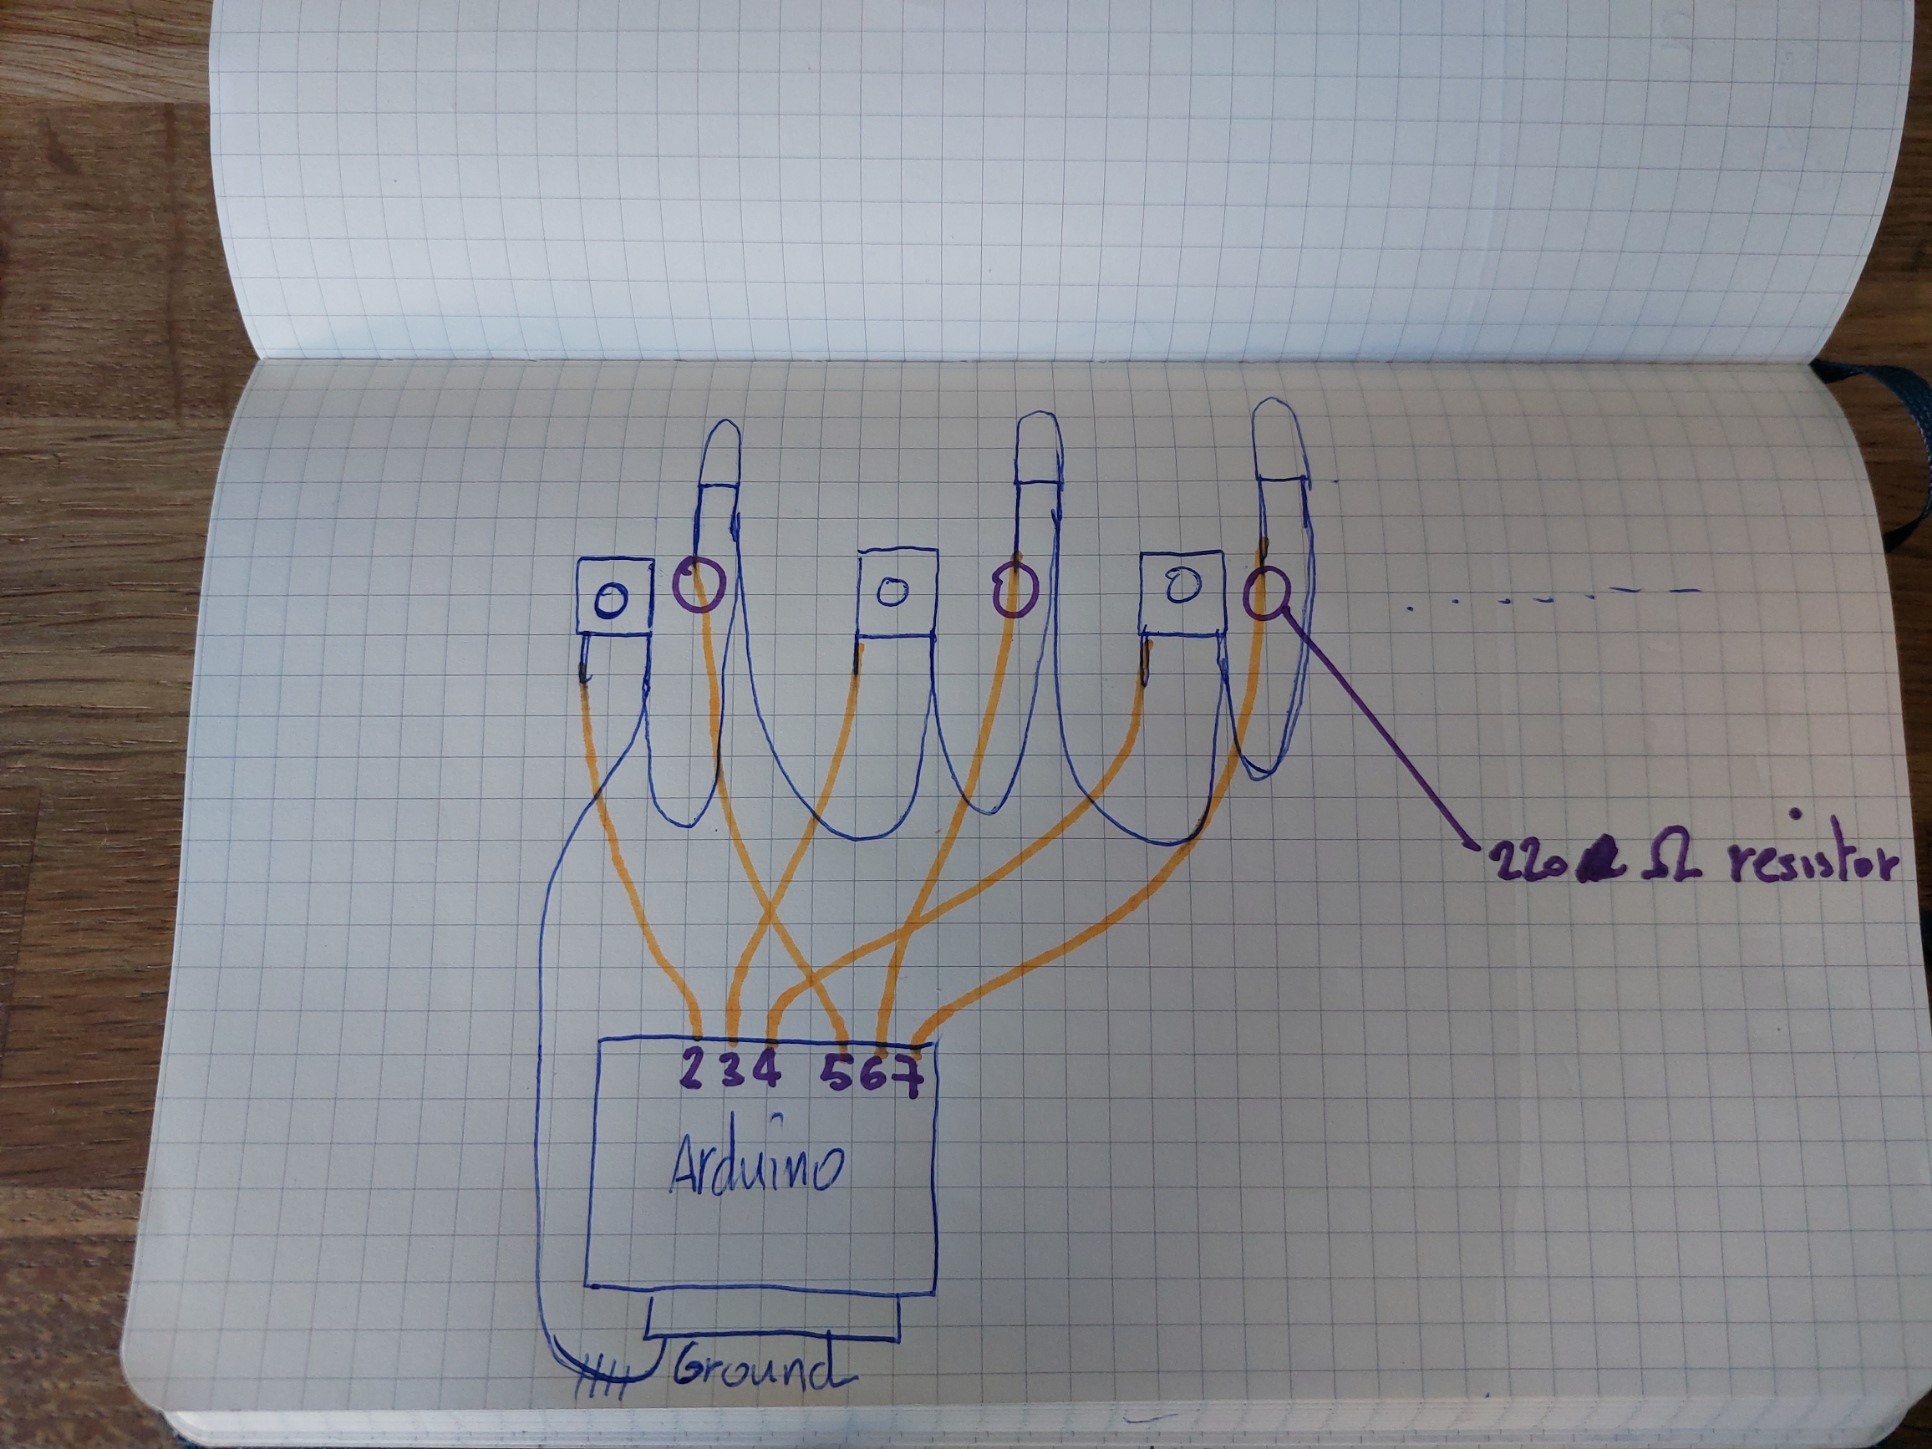 220 Ω resistor
2 3 4 5 6 7
Arduino
Ground